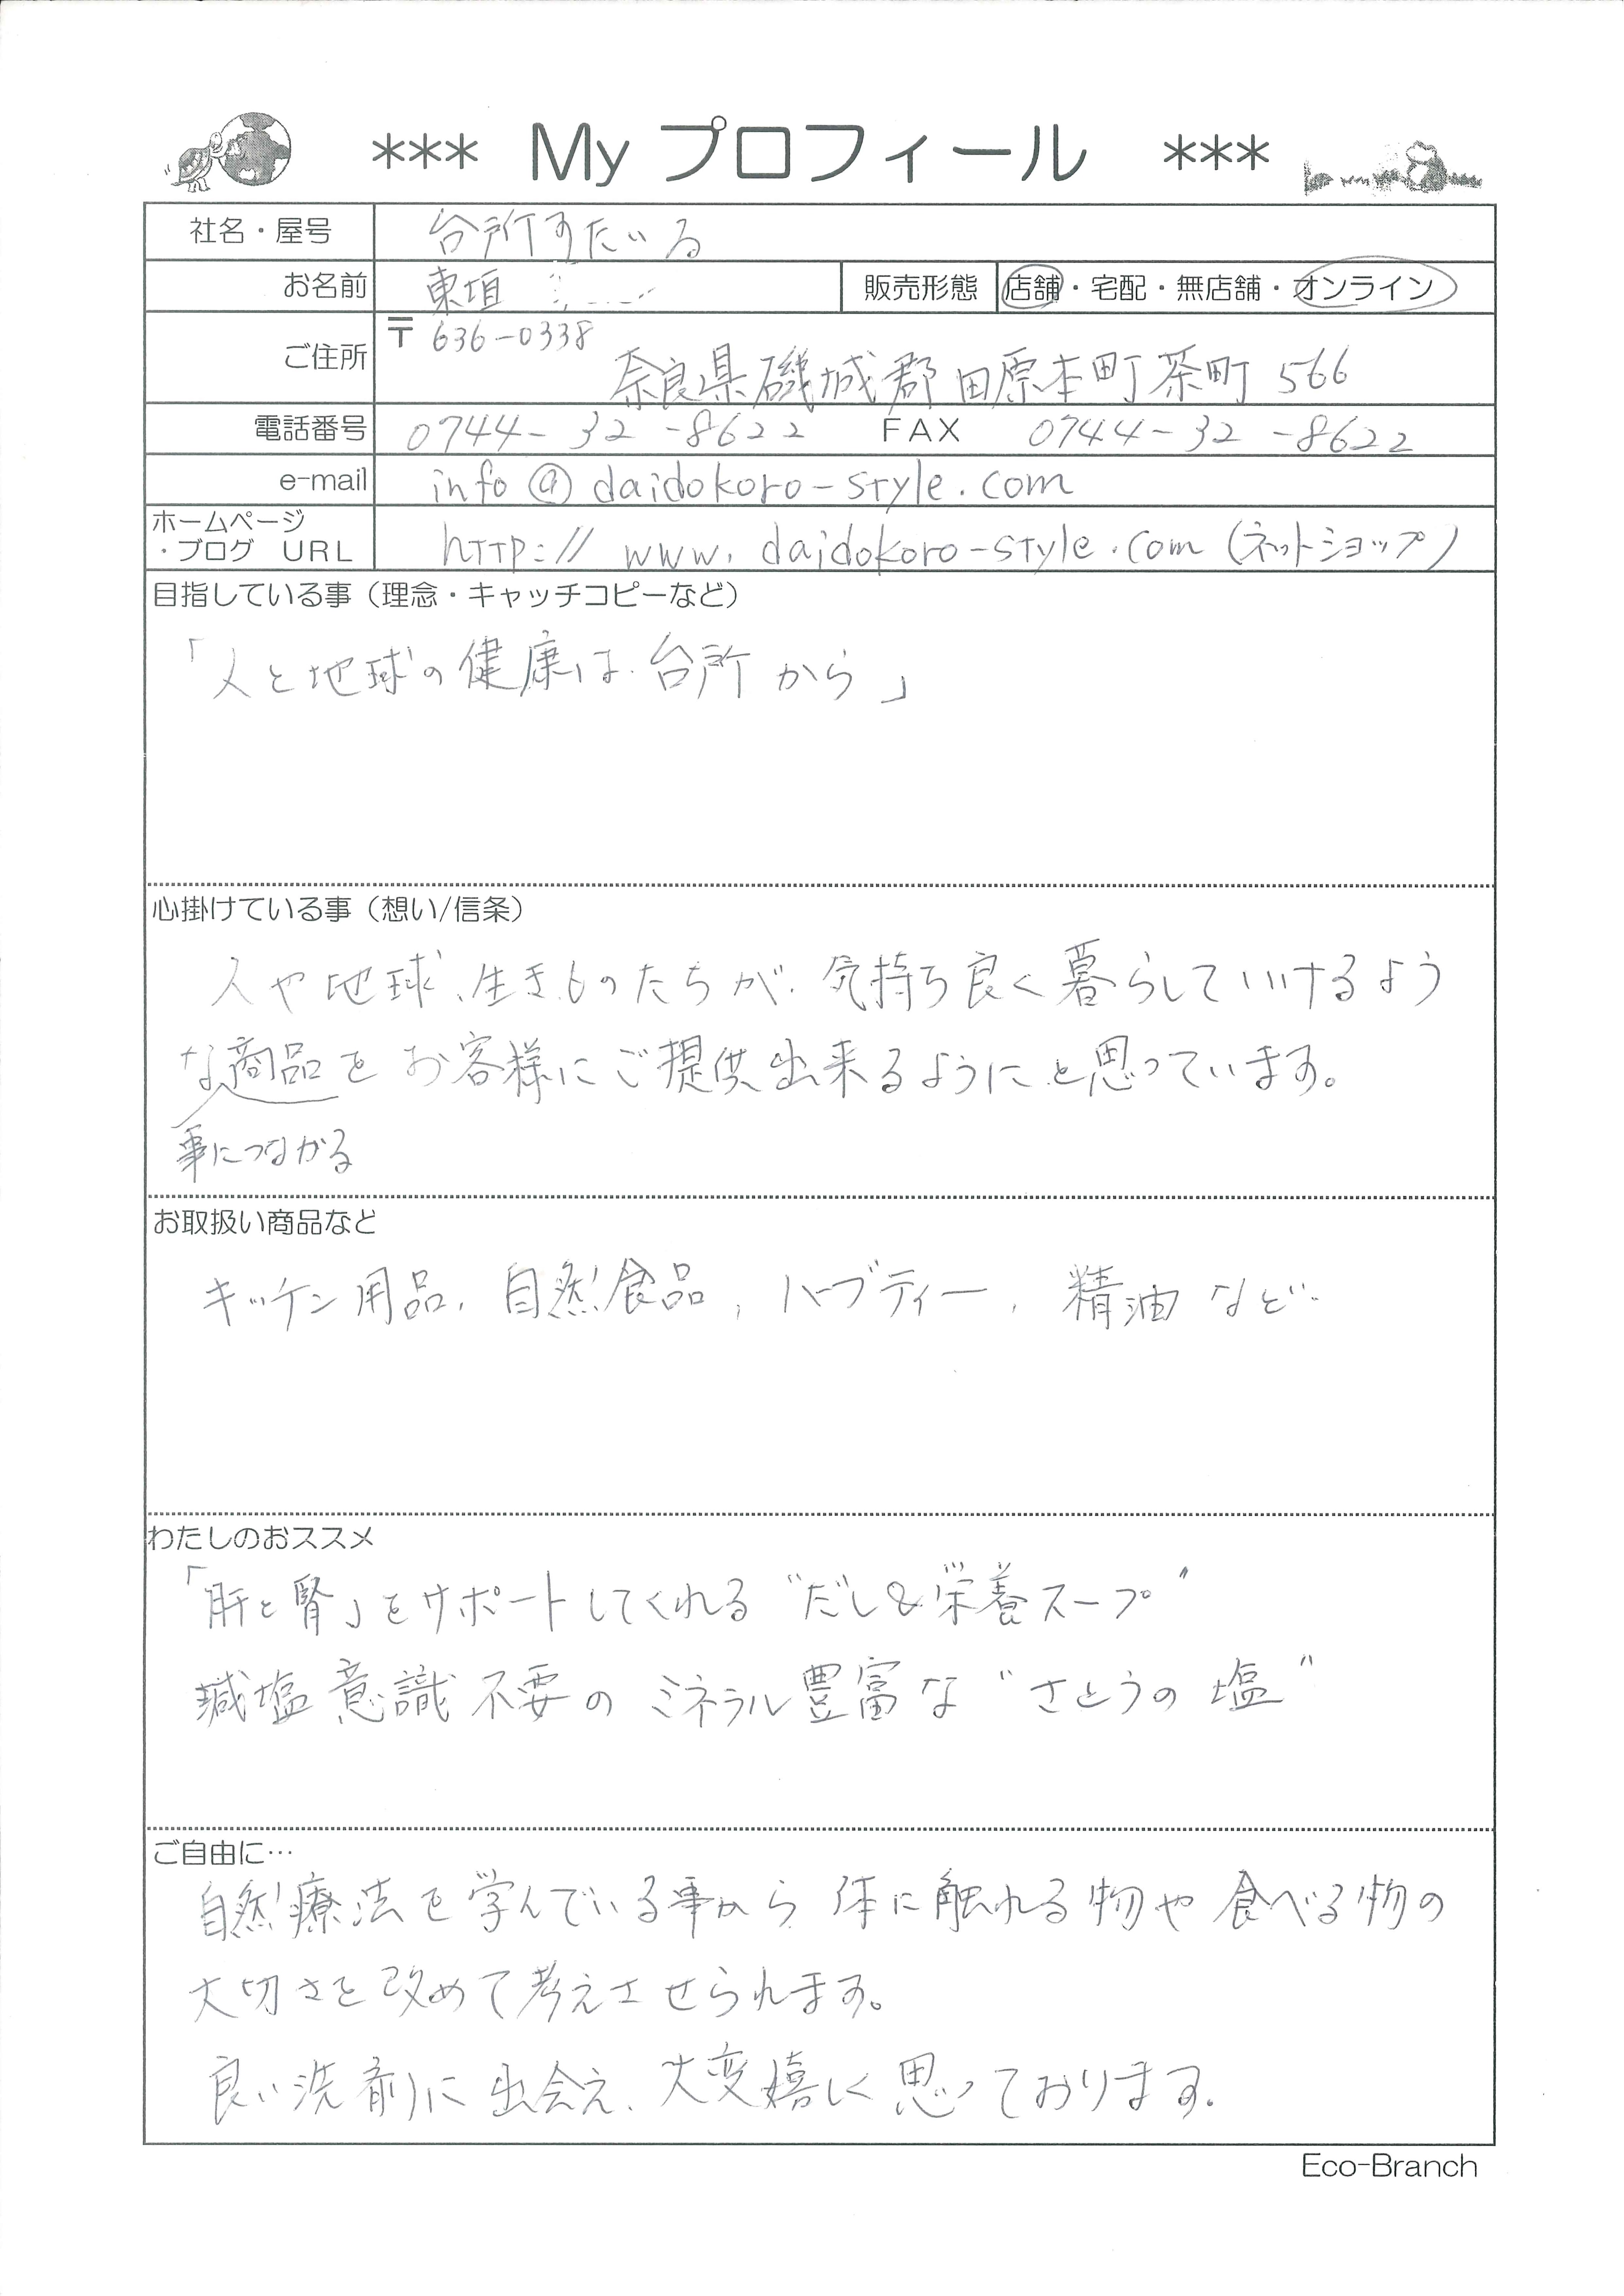 *** My プロフィール ***
社名・屋号 台所すたいる
お名前 東垣 販売形態 店舗・宅配・無店舗・オンライン
ご住所 〒 636-0338
奈良県磯城郡田原本町茶町 566
電話番号 0744-32-8622 FAX 0744-32-8622
e-mail info@daidokoro-style.com
ホームページ
・ブログ URL http://www.daidokoro-style.com (ネットショップ)
目指している事(理念・キャッチコピーなど)
「人と地球の健康は台所から」
心掛けている事(想い/信条)
人や地球、生きものたちが、気持ち良く暮らしていけるよう
な商品をお客様にご提供出来るようにと思っています。
事につながる
お取扱い商品など
キッチン用品、自然食品、ハーブティー、精油など…
わたしのおススメ
「肝と腎」をサポートしてくれる "だし&栄養スープ"
減塩意識不要のミネラル豊富な "さとうの塩"
ご自由に…
自然療法を学んでいる事から、体に触れる物や食べる物の
大切さを改めて考えさせられます。
良い洗剤に出会え、大変嬉しく思っております。
Eco-Branch